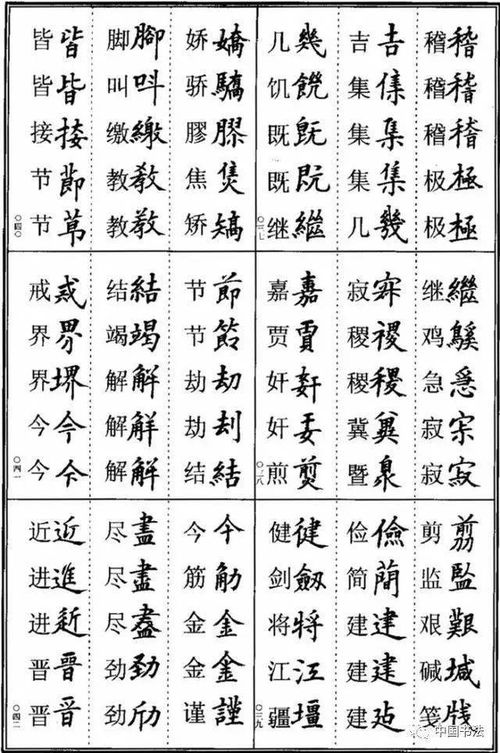 稽稽 稽稽 稽稽 极極 极極
吉𠮷 集 集集 集集 几幾
几幾 饥饑 既旣 既既 继繼
〇三七
继繼 鸡鷄 急急 寂 寂寂
寂 稷稷 稷稷 冀冀 暨
嘉嘉 贾賈 奸姧 奸 煎煎
〇三八
剪翦 监監 艰艱 碱堿 笺牋
俭儉 简簡 建建 建建 建
健健 剑劔 将將 江江 疆壃
〇三九
娇嬌 骄驕 膠膠 焦 矫矯
脚腳 叫叫 缴繳 教敎 教教
皆皆 皆皆 接接 节節 节
〇四〇
节節 节 劫劫 劫刦 结結
结結 竭竭 解解 解解 解解
戒戒 界界 界堺 今今 今
〇四一
今 筋 金金 金金 谨謹
尽盡 尽盡 尽盡 劲勁 劲
近近 进進 进 晋晉 晋晋
〇四二
中国书法